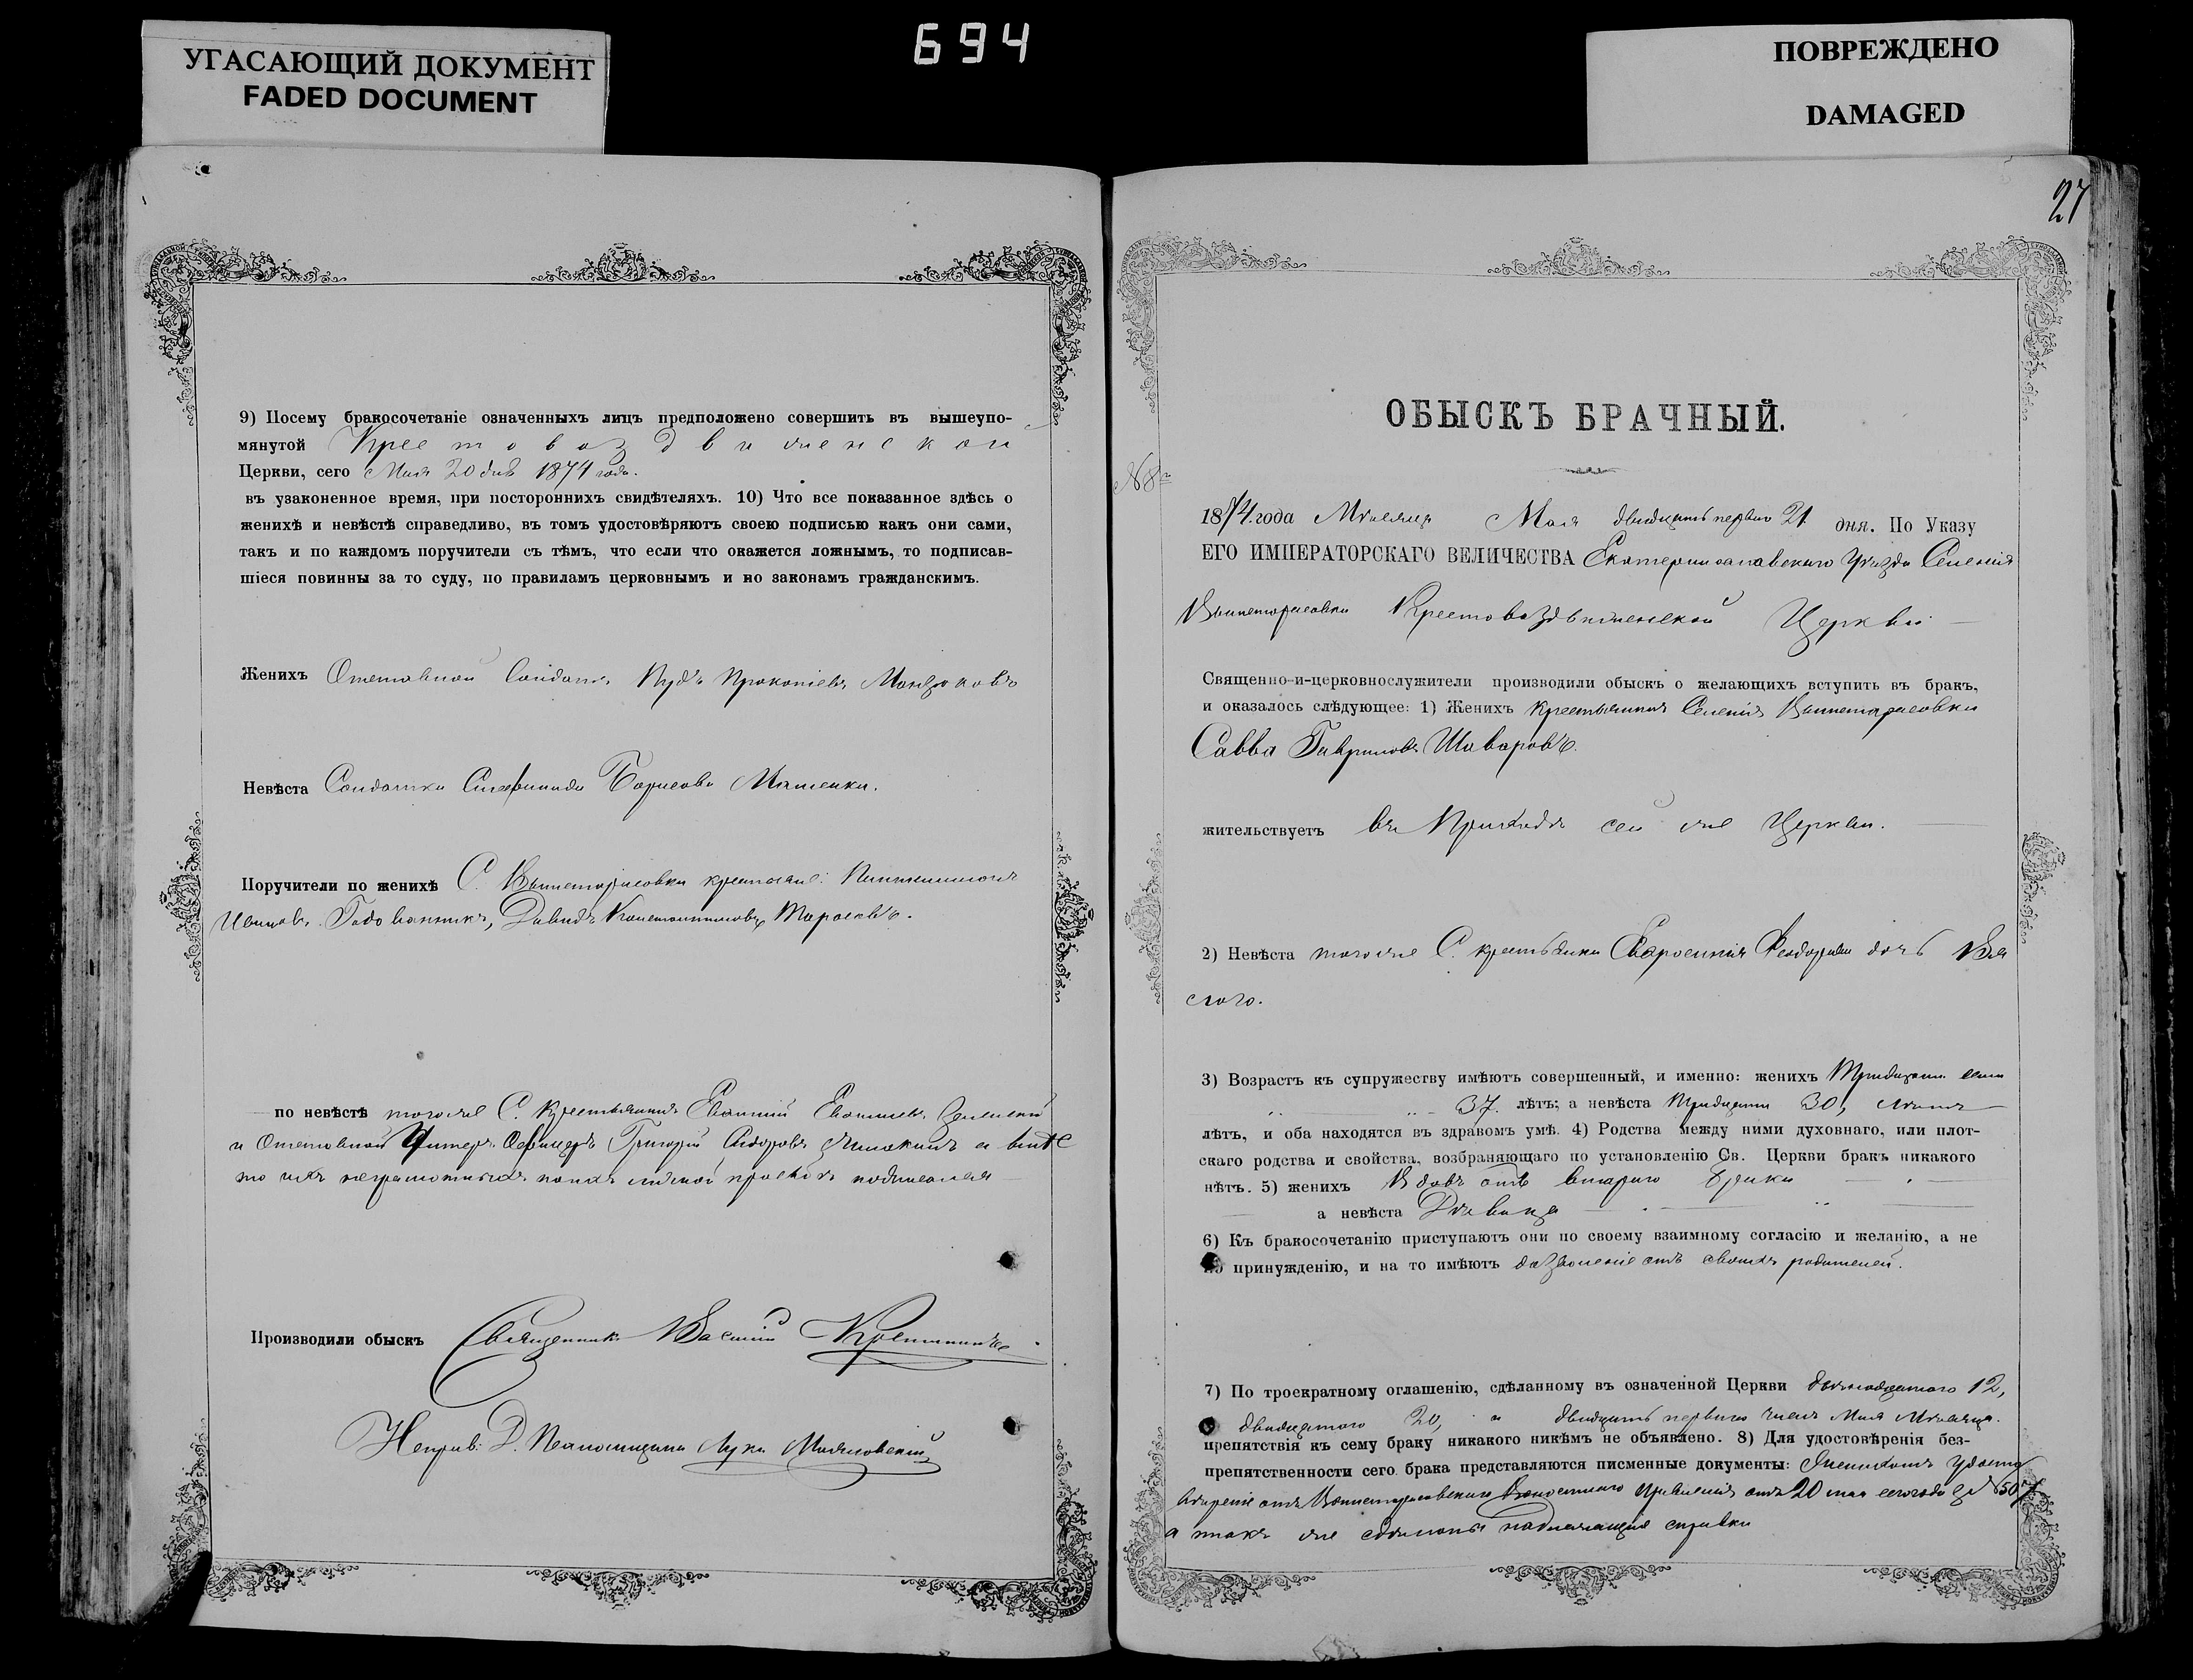 УГАСАЮЩИЙ ДОКУМЕНТ
FADED DOCUMENT
694
ПОВРЕЖДЕНО
DAMAGED
9) Посему бракосочетаніе означенныхъ лицъ предположено совершить въ вышеупо-
мянутой Крестовоздвиженской
Церкви, сего Мая 20 дня 1874 года.
въ узаконенное время, при постороннихъ свидѣтеляхъ. 10) Что все показанное здѣсь о
женихѣ и невѣстѣ справедливо, въ томъ удостовѣряютъ своею подписью какъ они сами,
такъ и по каждомъ поручители съ тѣмъ, что если что окажется ложнымъ, то подписав-
шіеся повинны за то суду, по правиламъ церковнымъ и по законамъ гражданскимъ.
Женихъ Отставной Солдатъ Пудъ Прокопіевъ
Невѣста Солдатка Борисова
Поручители по женихѣ С. Вытетарасовки
Ивановъ Давидъ Константиновъ Тарасовъ.
по невѣстѣ тогоже С. Крестьянинъ
и Отставной Унтеръ Офицеръ Григорій Сидоровъ а вмѣс
то ихъ неграмотныхъ
Производили обыскъ Священникъ Василій
Псаломщика Лука
27
ОБЫСКЪ БРАЧНЫЙ.
№ 8
1874 года Мѣсяца Мая двадцать перваго 21 дня. По Указу
ЕГО ИМПЕРАТОРСКАГО ВЕЛИЧЕСТВА Екатеринославскаго Уѣзда Селенія
Вытетарасовки Крестовоздвиженской Церкви
Священно-и-церковнослужители производили обыскъ о желающихъ вступить въ бракъ,
и оказалось слѣдующее: 1) Женихъ Крестьянинъ Селенія Вытетарасовки
Савва Гавриловъ Шаваровъ.
жительствуетъ въ Приходѣ сей же Церкви.
2) Невѣста тогоже С. дочь
3) Возрастъ къ супружеству имѣютъ совершенный, и именно: женихъ Тридцати семи
37. лѣтъ; а невѣста Тридцати 30,
лѣтъ, и оба находятся въ здравомъ умѣ. 4) Родства между ними духовнаго, или плот-
скаго родства и свойства, возбраняющаго по установленію Св. Церкви бракъ никакого
нѣтъ. 5) женихъ Вдовъ отъ втораго брака
а невѣста Дѣвица
6) Къ бракосочетанію приступаютъ они по своему взаимному согласію и желанію, а не
по принужденію, и на то имѣютъ дозволеніе отъ своихъ родителей.
7) По троекратному оглашенію, сдѣланному въ означенной Церкви двѣнадцатаго 12,
двадцатаго 20, и двадцать перваго чиселъ Мая Мѣсяца.
препятствія къ сему браку никакого никѣмъ не объявлено. 8) Для удостовѣренія без-
препятственности сего брака представляются писменные документы: Женихомъ удосто
вѣреніе отъ Вытетарасовскаго Волостнаго Правленія отъ 20 мая сего года за №
а такъ же сдѣланы надлежащія справки